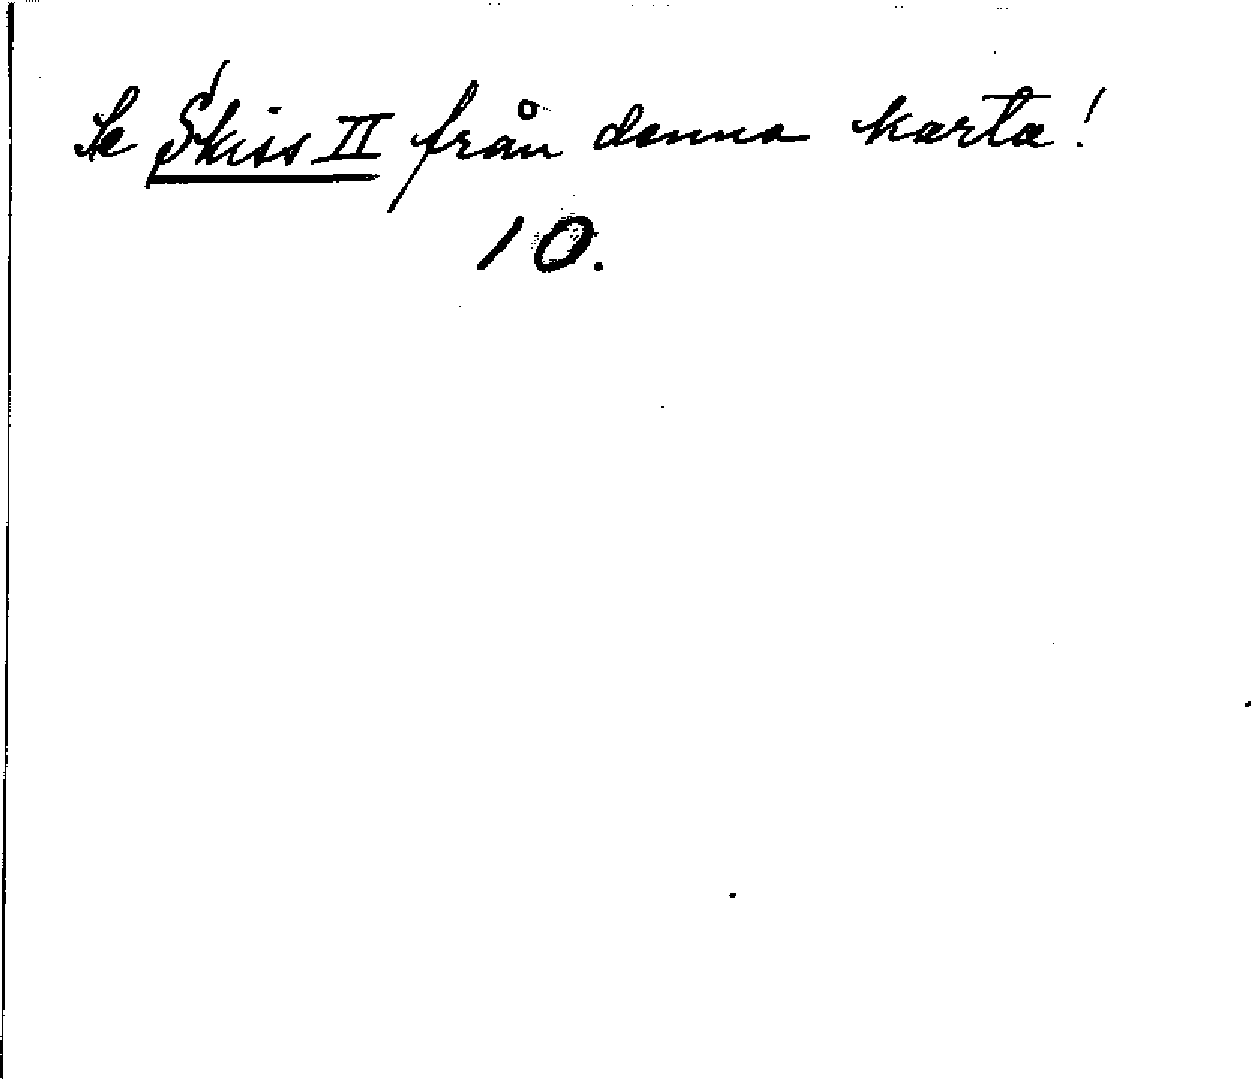 Se Skiss II från denna karta!
10.